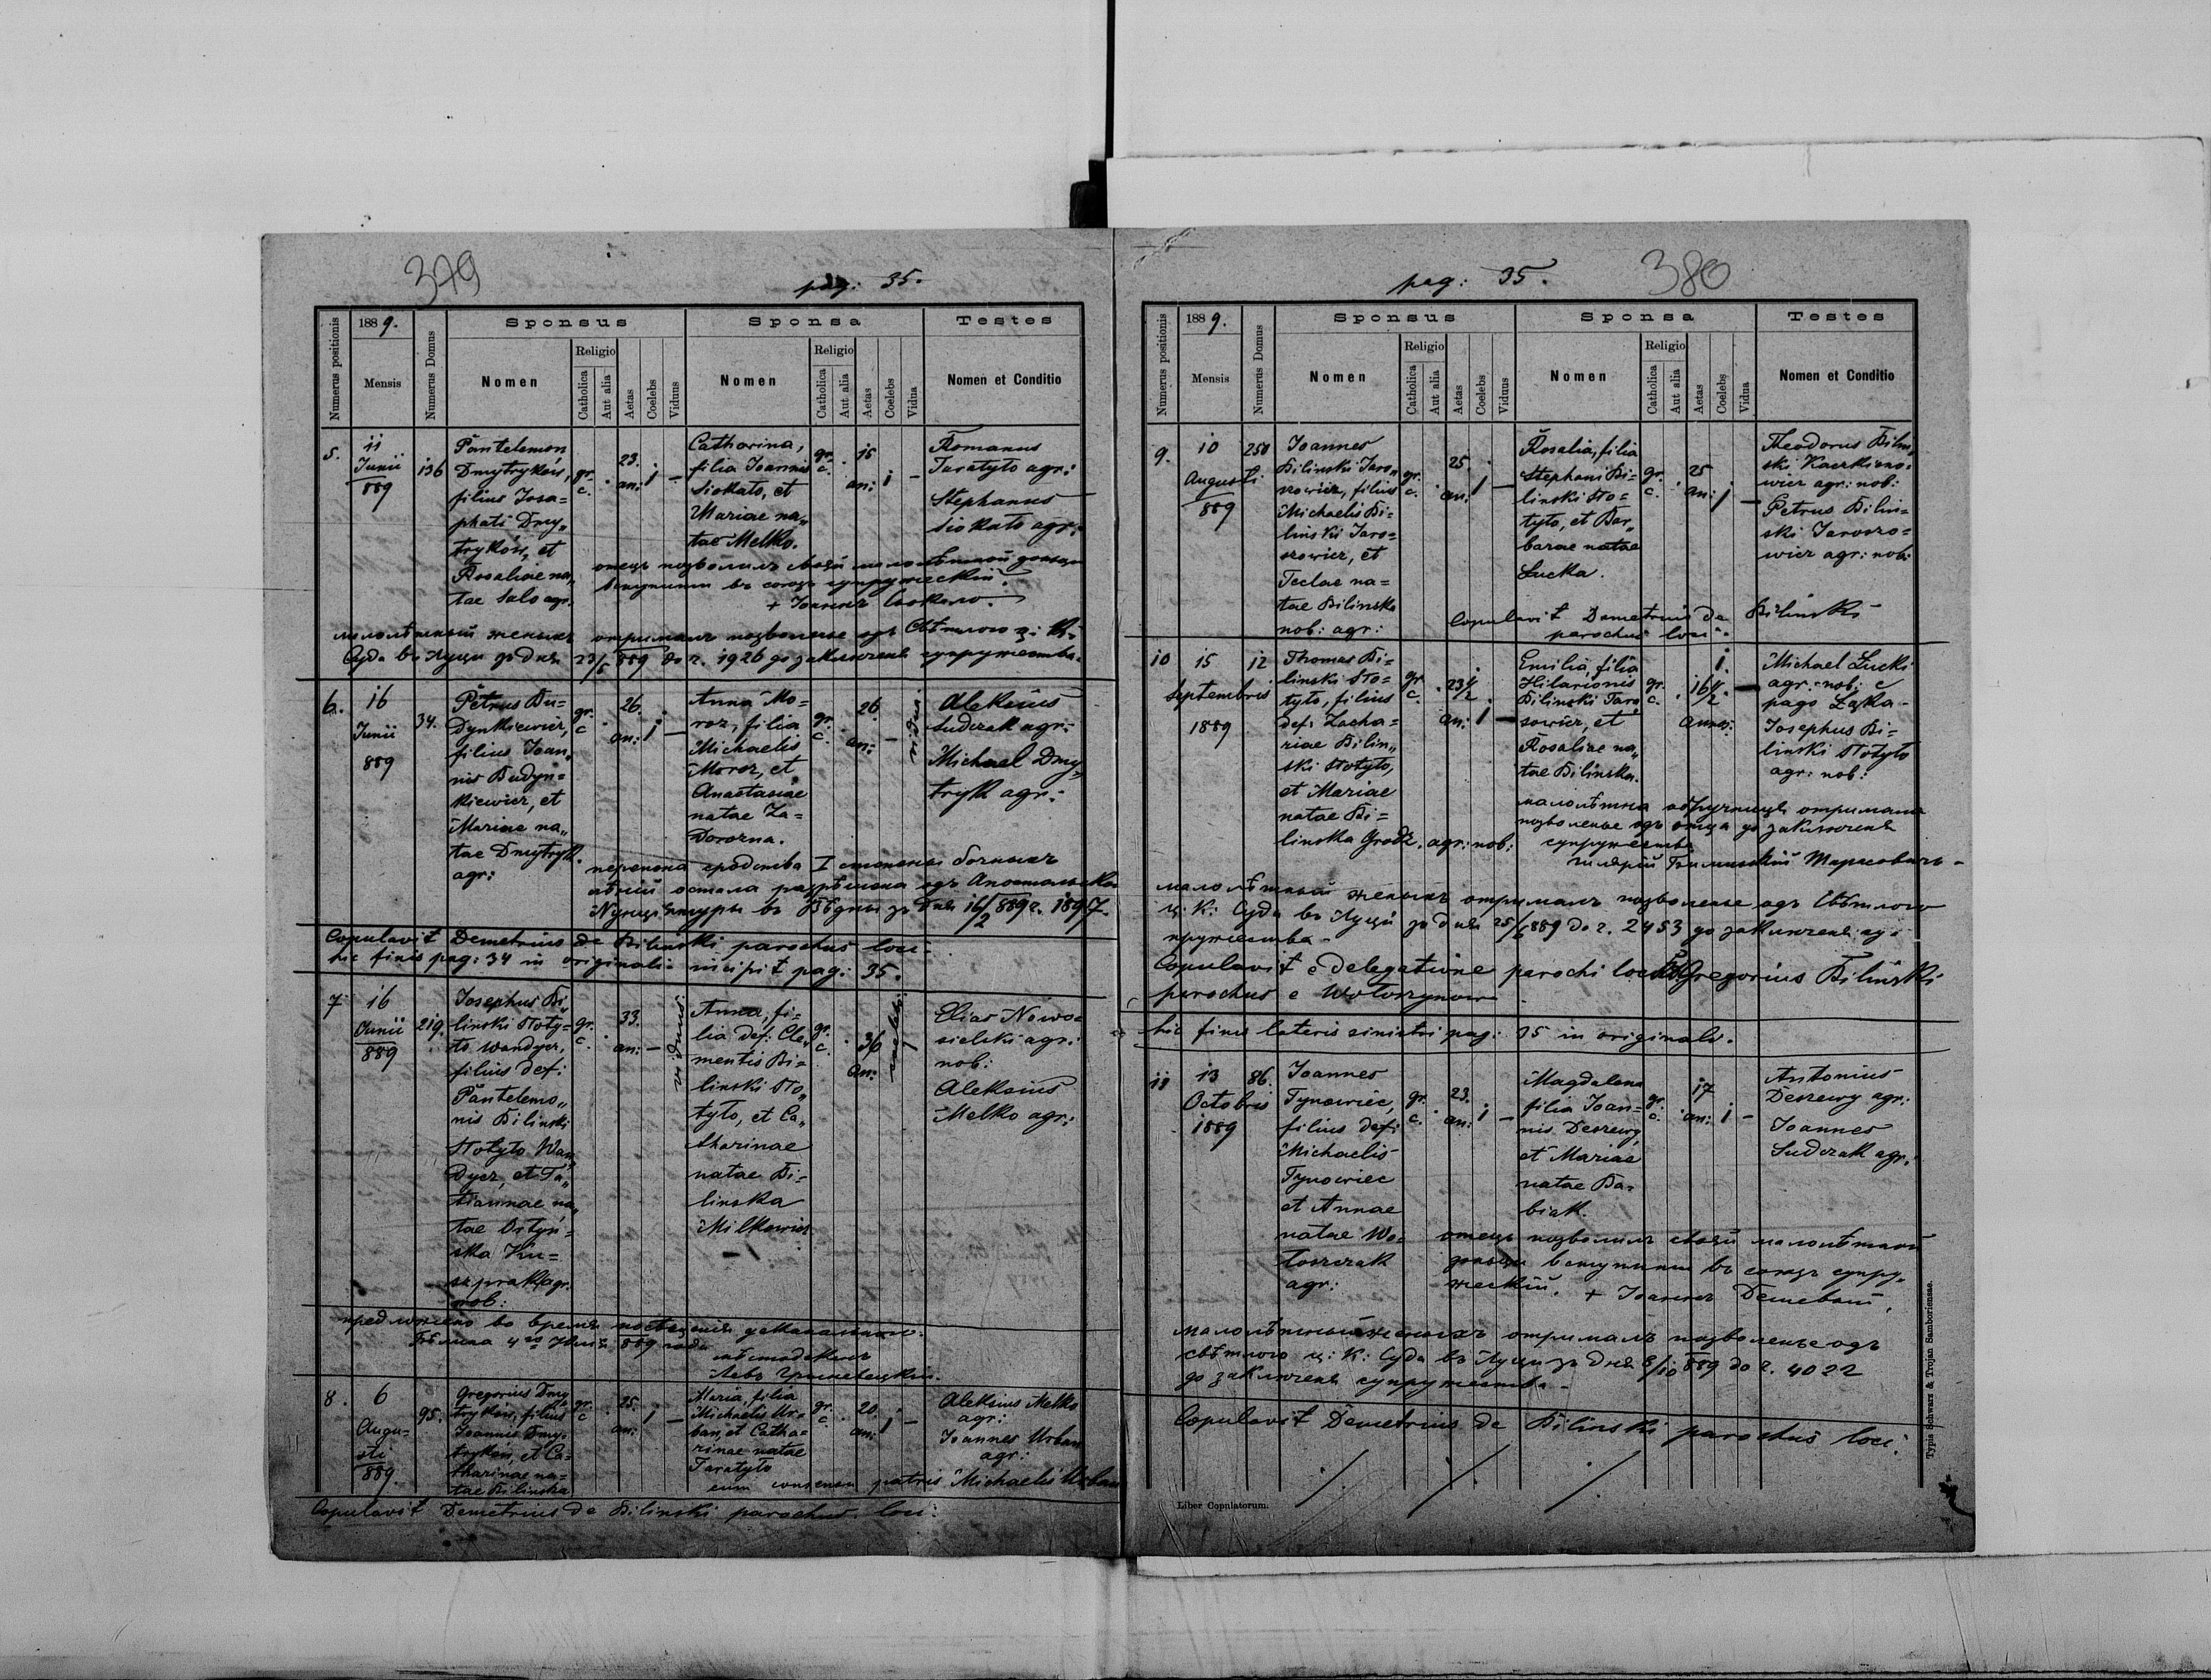 379
pag: 35.
Numerus positionis
1889.
Mensis
Numerus Domus
Sponsus
Nomen
Religio
Catholica
Aut alia
Aetas
Coelebs
Viduus
Sponsa
Nomen
Religio
Catholica
Aut alia
Aetas
Coelebs
Vidua
Testes
Nomen et Conditio
5.
11
Junii
889
136
Pantelemon
Dmytryków,
filius Josa=
phati Dmy„
tryków, et
Rosaliae na„
tae Salo agr.
gr.
c.
23.
an:
1
Catharina,
filia Joannis
Siokalo, et
Mariae na„
tae Melko.
gr.
c.
15
an:
1
Romanus
Taratyło agr:
Stephanus
Siokalo agr:
отецъ позволилъ своєй малолѣтной доньци
вступити въ союзъ супружескій.
+ Іоаннъ
малолѣтный женихъ отрималъ позволеніе одъ Свѣтлого ц: К:
Суда въ Луци зъ дня 23/5 889 до г. 1926 до заключенія супружества.
6.
16
Junii
889
34.
Petrus Bu=
dynkiewicz,
filius Joan„
nis Budyn=
kiewicz, et
Mariae na„
tae Dmytryk.
agr:
gr.
c
26.
an:
1
Anna Mo=
roz, filia
Michaelis
Moroz, et
Anastasiae
natae Za=
dorozna.
gr.
c.
26
an:
vidua
Aleksius
Sudczak agr:
Michael Dmy„
tryk agr:
перепона сродства I степени бочныхъ
линій остала розрѣшена одъ Апостольской
Нунціатуры въ Вѣдни зъ дня 16/2 889 г. 1897.
Copulavit Demetrius de Bilinski parochus loci.
hic finis pag: 34 in originali incipit pag: 35.
7
16
Junii
889
219.
Josephus Bi„
linski Noty=
to Wandycz,
filius def:
Pantelemo„
nis Bilinski
Notyto Wan„
dycz, et Ta„
tiannae na„
tae Ostyń=
ska Ku=
szprak agr.
nob:
gr.
c.
33.
an:
viduus
Anna, fi=
lia def: Cle„
mentis Bi=
linski No„
tyto, et Ca„
tharinae
natae Bi=
linska
Milkowicz
gr.
c.
36
an:
caelebs
Elias Nowo=
sielski agr:
nob:
Aleksius
Melko agr:
предложено во время посѣщенія
Бѣлина 4го Юнія 889 года
8.
6
Augu=
sti
889
95.
Gregorius Dmy„
tryków, filius
Joannis Dmy„
tryków, et Ca=
tharinae na=
tae Bilinska
gr.
c
25.
an:
1
Maria, filia
Michaelis Ur=
ban, et Catha=
rinae natae
Taratyło
gr.
c
20.
an:
1
Aleksius Melko
agr:
Joannes Urban
agr:
cum consensu patris Michaelis Urban
Copulavit Demetrius de Bilinski parochus loci:
380
pag: 35.
Numerus positionis
1889.
Mensis
Numerus Domus
Sponsus
Nomen
Religio
Catholica
Aut alia
Aetas
Coelebs
Viduus
Sponsa
Nomen
Religio
Catholica
Aut alia
Aetas
Coelebs
Vidua
Testes
Nomen et Conditio
9.
10
Augusti
889
250
Joannes
Bilinski Jaro„
szowicz, filius
Michaelis Bi=
linskii Jaro=
szowicz, et
Teclae na=
tae Bilinska
nob: agr:
gr.
c.
25.
an:
1
Rosalia, filia
Stephani Bi=
linski No=
tyto, et Bar„
barae natae
Łucka.
gr.
c.
25
an:
1
Theodorus Bilin„
ski Kaczkiono=
wicz agr: nob:
Petrus Bilin=
ski Jaroszo=
wicz agr: nob:
Copulavit Demetrius de Bilinski
parochus loci.
10
15
Septembris
1889
12
Thomas Bi=
linski No=
tyto, filius
def: Zacha=
riae Bilin„
ski Notyto,
et Mariae
natae Bi=
linska Grodz. agr: nob:
gr.
c.
23 1/2
an:
1
Emilia, filia
Hilarionis
Bilinski Tara„
sowicz, et
Rosaliae na„
tae Bilinska.
gr.
c.
16 1/2
annor:
1.
Michael Łucki
agr: nob: e
pago Łąka
Josephus Bi=
linski Notyto
agr: nob:
малолѣтна обручниця отримала
позволеніе одъ отца до заключенія
супружества
Гиляріи Билинскій Тарасовичъ
малолѣтный женихъ отрималъ позволеніе одъ Свѣтлого
ц: К: Суда въ Луци зъ дня 25/6 889 до г. 2453 до заключенія су=
пружества.
Copulavit e delegatione parochi loci Gregorius Bilinski
parochus e Wołoszynowa
hic finis lateris sinistri pag: 35 in originali.
11
13
Octobris
1889
86.
Joannes
Tynowiec,
filius def:
Michaelis
Tynowiec
et Annae
natae Wo=
łoszczak
agr:
gr.
c.
23.
an:
1
Magdalena
filia Joan=
nis Deszewy,
et Mariae
natae Ba=
biak.
gr.
c.
17
an:
1
Antonius
Deszewy agr:
Joannes
Sudczak agr:
отецъ позволилъ своєй малолѣтной
доньци вступити въ союзъ супру„
жескій. + Іоаннъ Дешевый.
малолѣтный женихъ отрималъ позволеніе одъ
свѣтлого ц: К: Суда въ Луци зъ дня 8/10 889 до г. 4022
до заключенія супружества.
Copulavit Demetrius de Bilinski parochus loci.
Liber Copulatorum.
Typis Schwarz & Trojan Samboriensae.